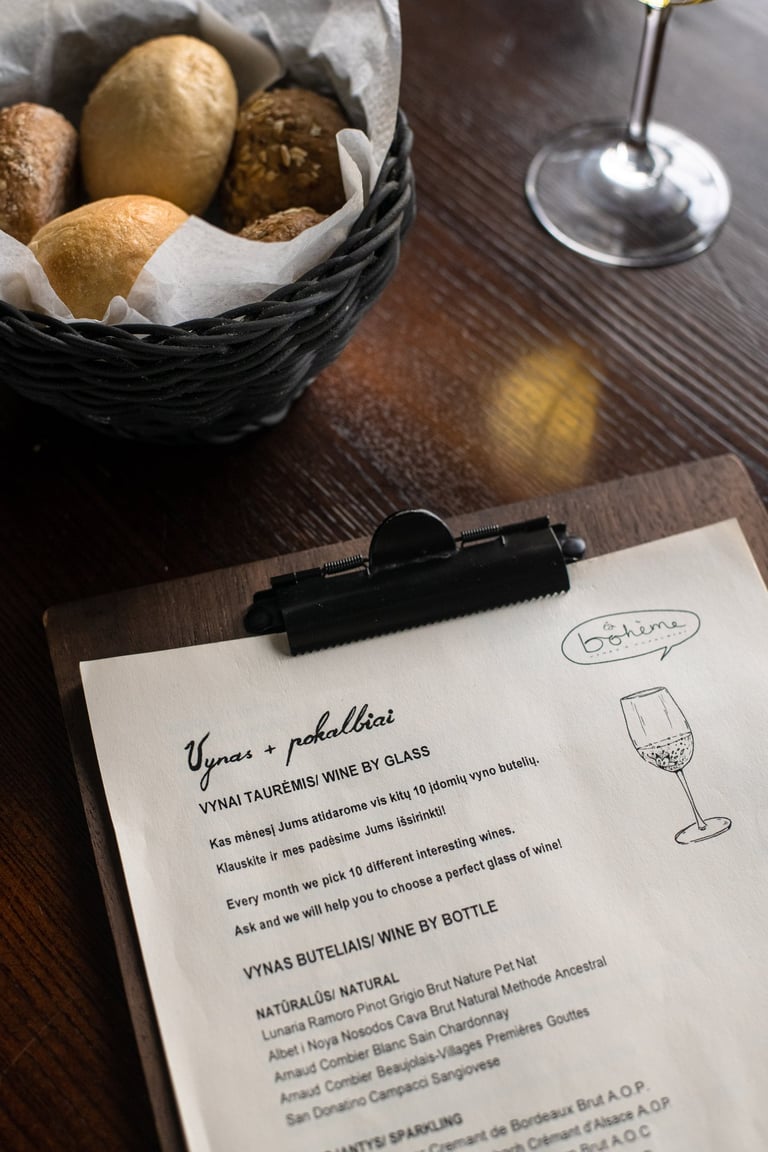 bohème
Vynas + pokalbiai
VYNAI TAURĖMIS/ WINE BY GLASS
Kas mėnesį Jums atidarome vis kitų 10 įdomių vyno butelių.
Klauskite ir mes padėsime Jums išsirinkti!
Every month we pick 10 different interesting wines.
Ask and we will help you to choose a perfect glass of wine!
VYNAS BUTELIAIS/ WINE BY BOTTLE
NATŪRALŪS/ NATURAL
Lunaria Ramoro Pinot Grigio Brut Nature Pet Nat
Albet i Noya Nosodos Cava Brut Natural Methode Ancestral
Arnaud Combier Blanc Sain Chardonnay
Arnaud Combier Beaujolais-Villages Premières Gouttes
San Donatino Campacci Sangiovese
SPARKLING
Cremant de Bordeaux Brut A.O.P.
Crémant d'Alsace A.O.P.
Brut A.O.C